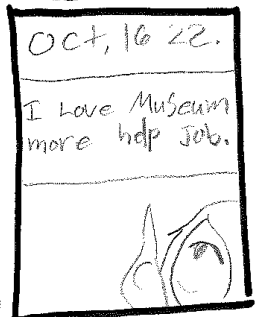 Oct, 16 22.
I Love Museum
more help Job.